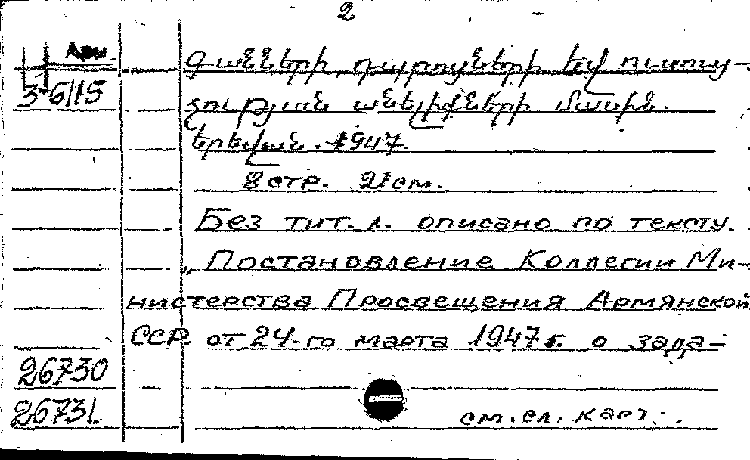 2
Арм.
3-6/15
գանների, դպրոցների եվ ուսուց-
չության անելիքների մասին.
Երեվան. 1947.
8 стр. 21 см.
Без тит. л. описано по тексту.
„Постановление Коллегии Ми-
нистерства Просвещения Армянской
ССР. от 24-го марта 1947 г. о зада-
26730
26731.
см. сл. карт.